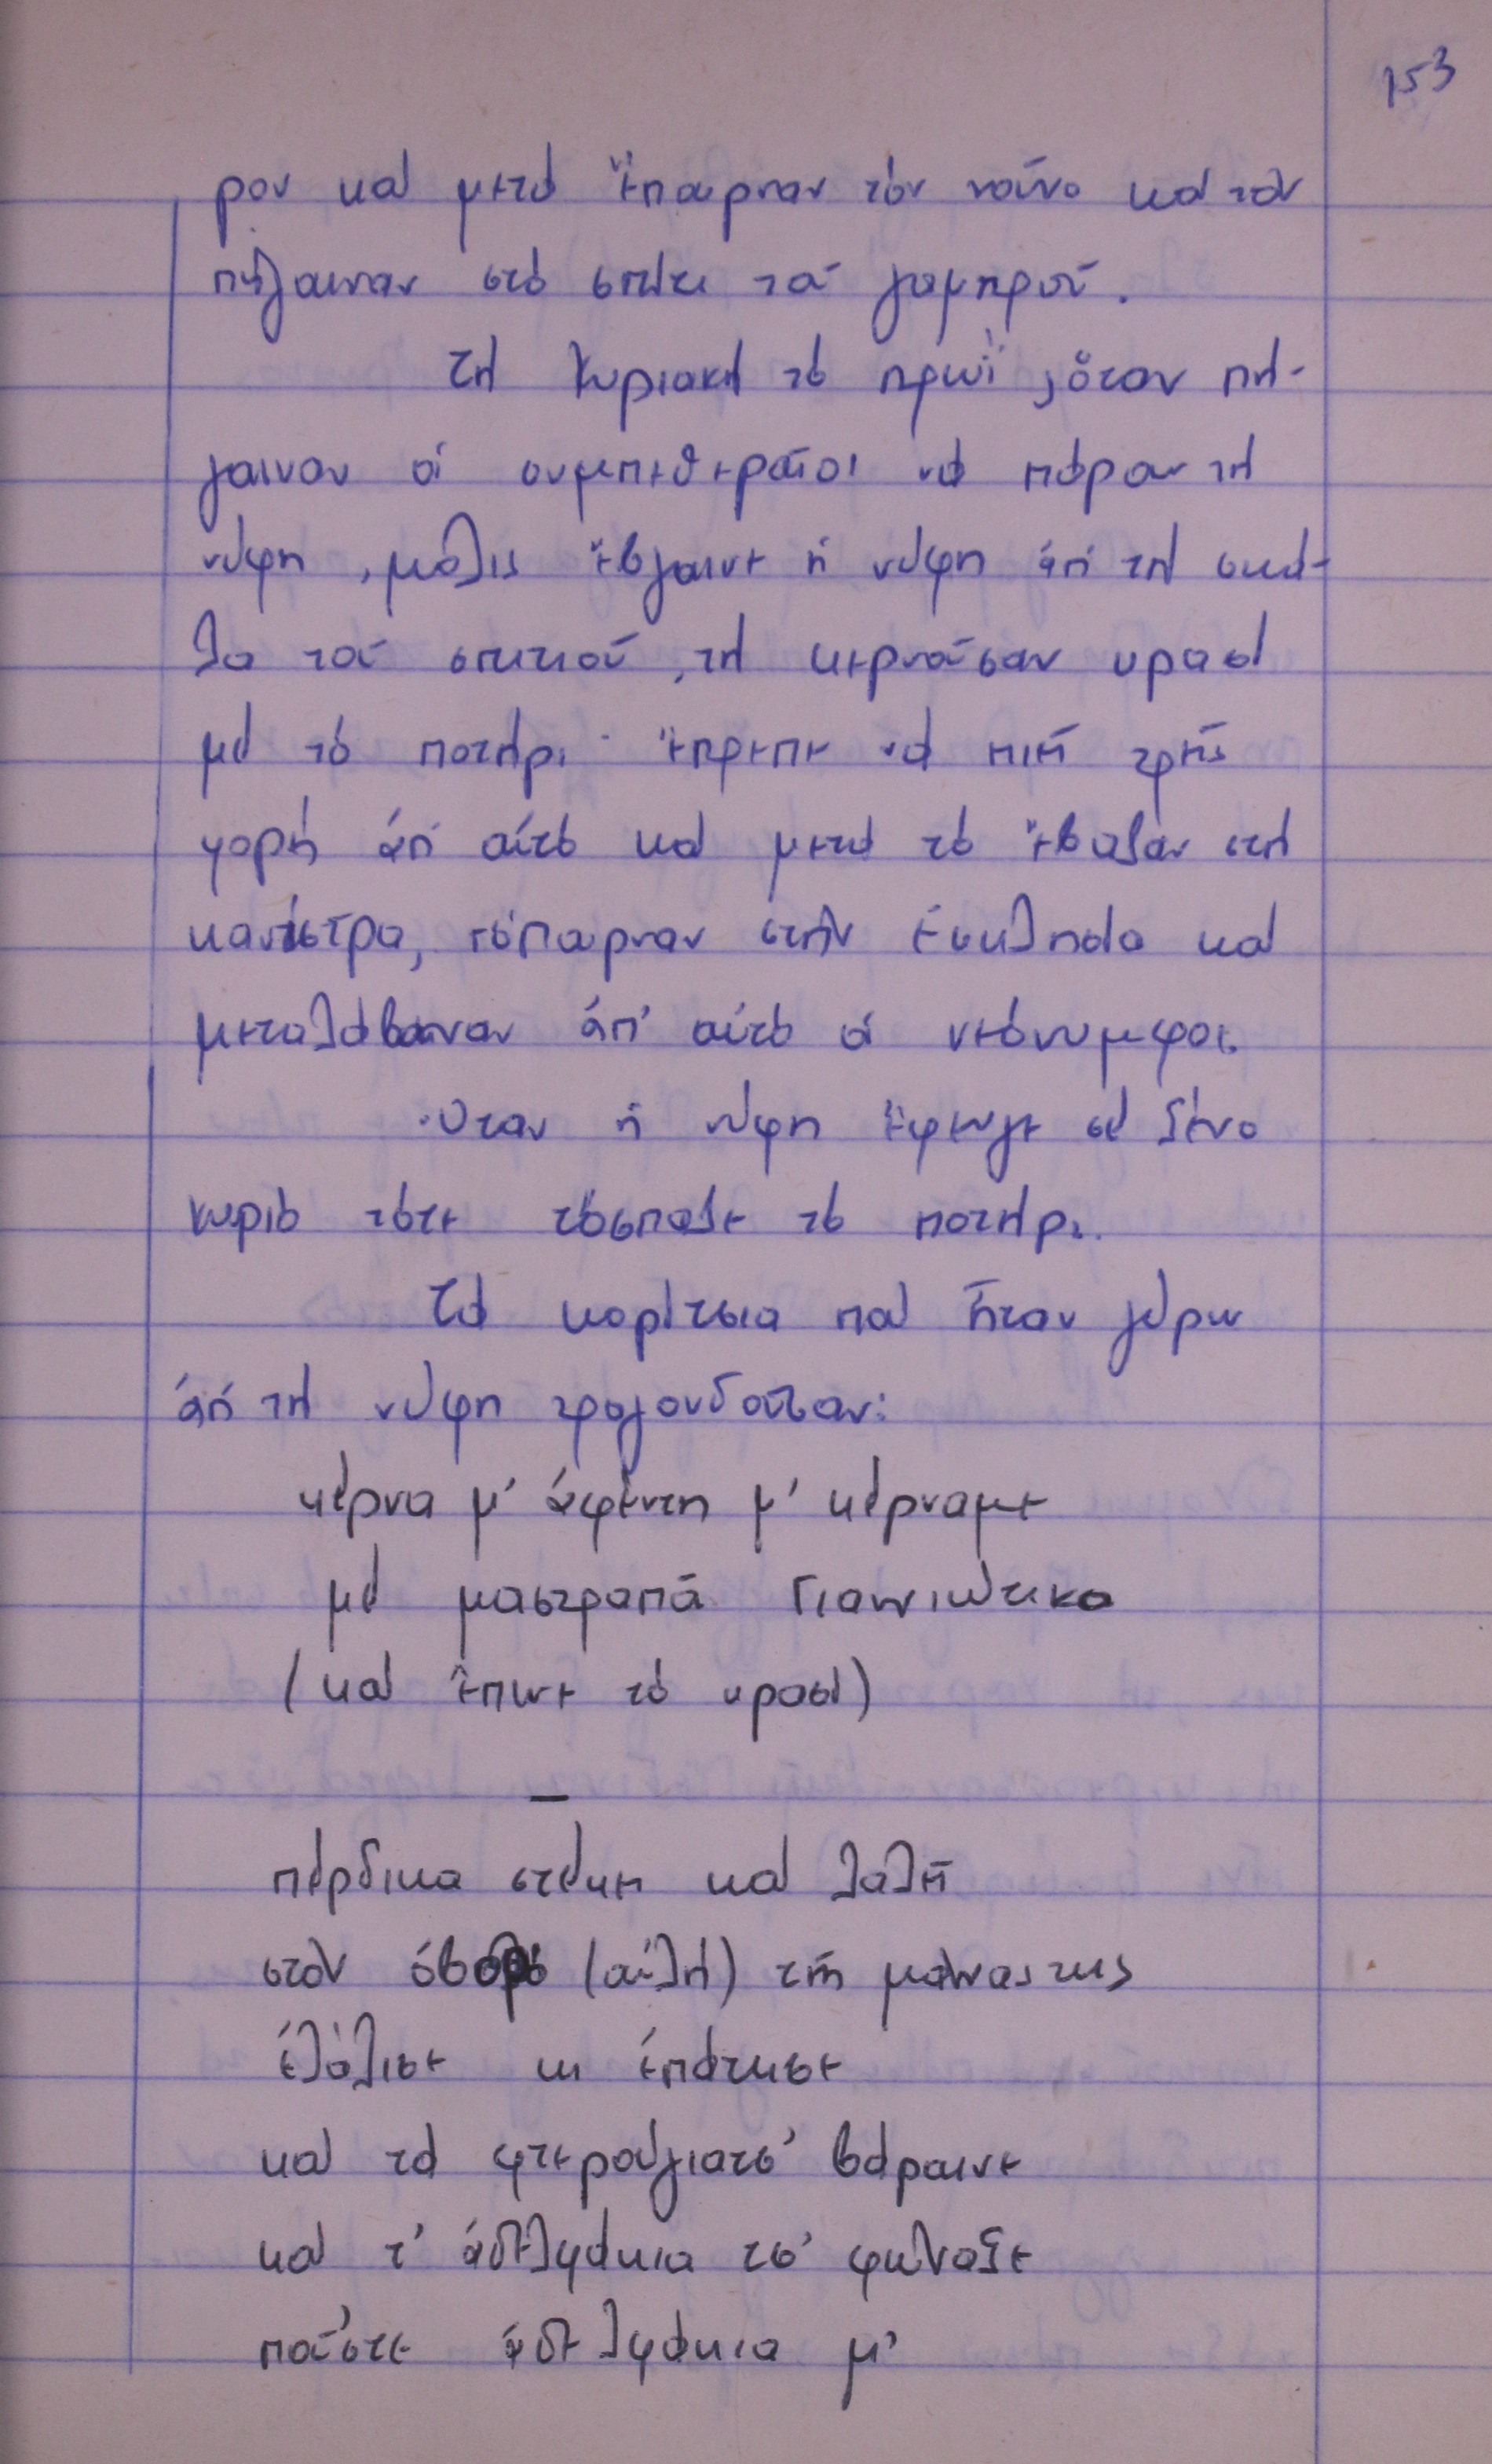 153
ρον καί μετά ἔπαιρναν τόν νοῦνο καί τόν
πήγαιναν στό σπίτι τοῦ γαμπροῦ.
Τή Κυριακή τό πρωΐ, ὅταν πή-
γαιναν οἱ συμπεθεραῖοι νά πάρουν τή
νύφη, μόλις ἔβγαινε ἡ νύφη ἀπ τή σκά-
λα τοῦ σπιτιοῦ, τή κερνοῦσαν κρασί
μέ τό ποτήρι· ἔπρεπε νά πιῆ τρεῖς
φορές ἀπ' αὐτό καί μετά τό ἔβαζαν στή
κανίστρα, τόπαιρναν στήν ἐκκλησία καί
μεταλάβαιναν ἀπ' αὐτό οἱ νεόνυμφοι.
Ὅταν ἡ νύφη ἔφευγε σέ ξένο
χωριό τότε τόσπαζε τό ποτήρι.
Τά κορίτσια πού ἦταν γύρω
ἀπ τή νύφη τραγουδοῦσαν:
κέρνα μ' ἀφέντη μ' κέρναμε
μέ μαστραπᾶ Γιαννιώτικο
(καί ἔπινε τό κρασί)
—
πέρδικα στέκει καί λαλεῖ
στόν ὀβορό (αὐλή) τῆ μάνας της
ἐλάλισε κι ἐπάτησε
καί τά φτερούγιατσ' βάραινε
καί τ' ἀδελφάκια τσ' φώναξε
ποῦστε ἀδελφάκια μ'